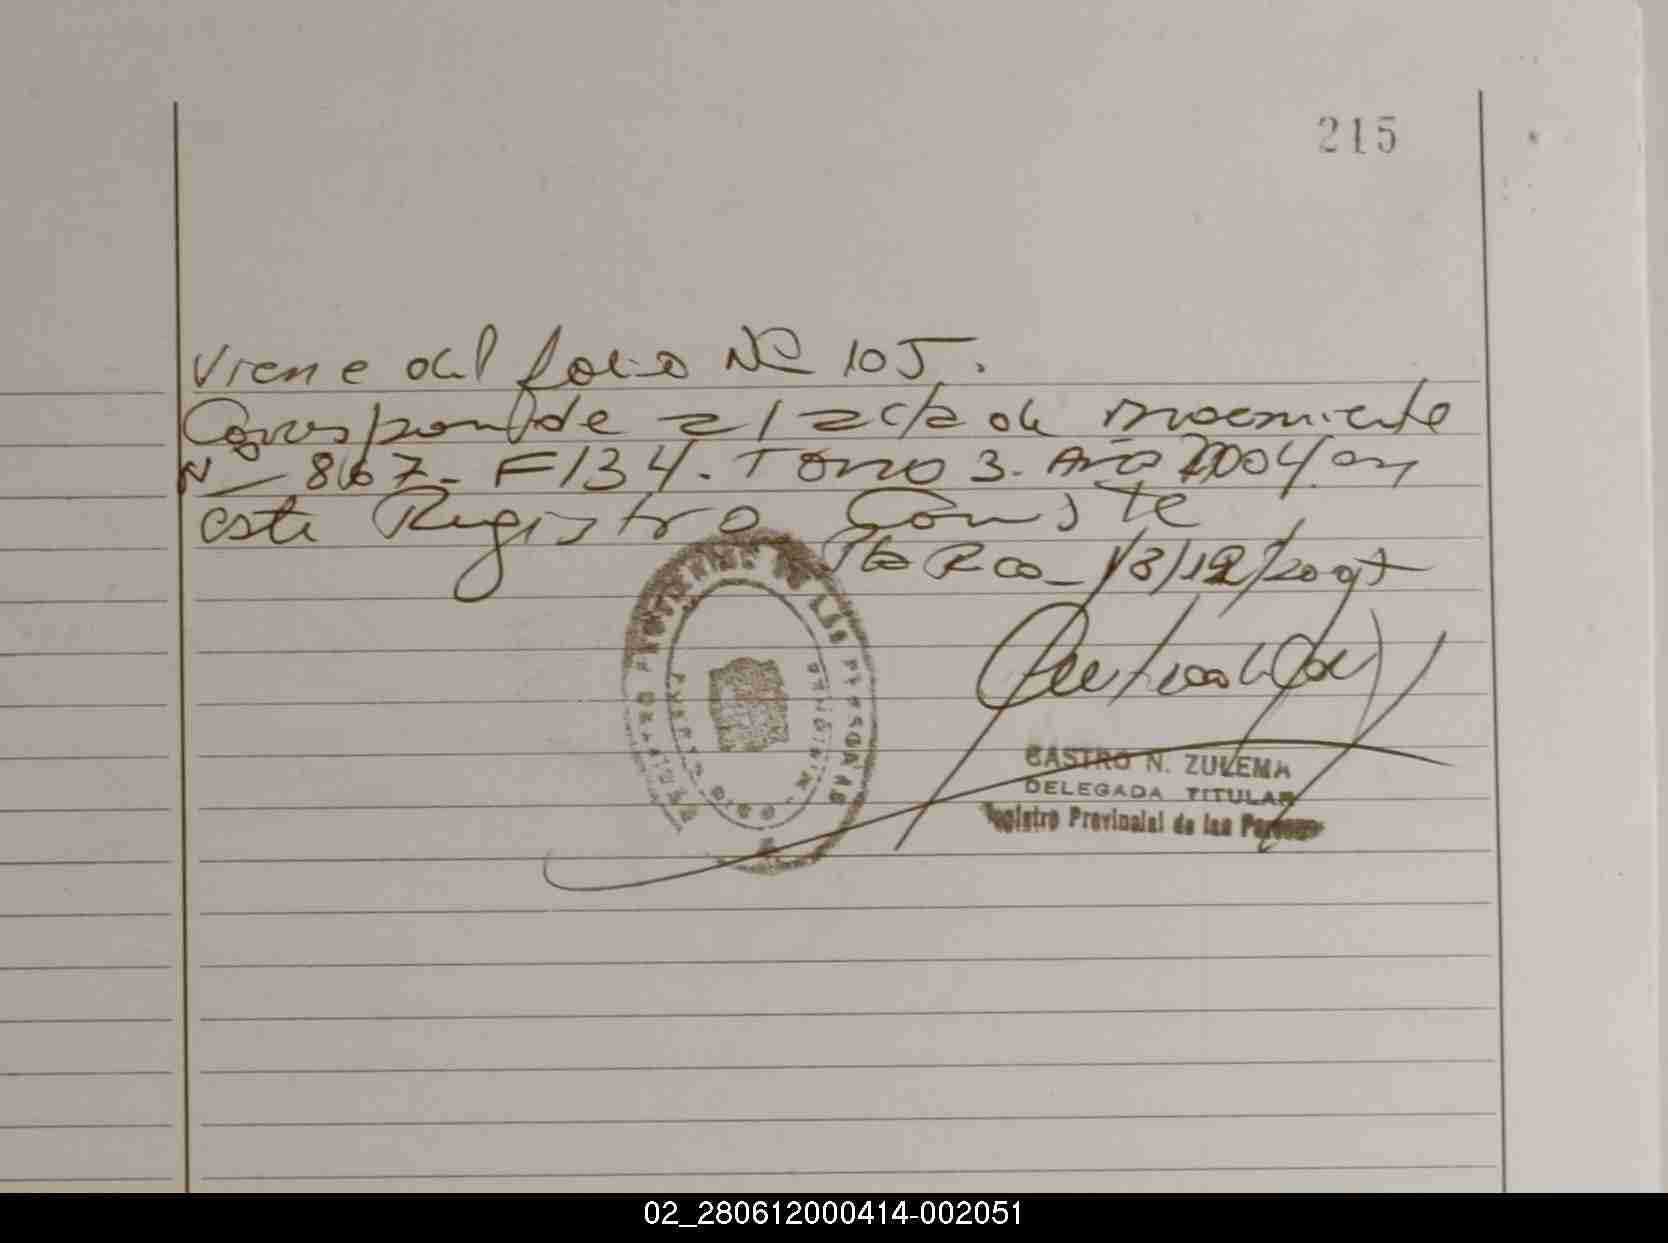 215
Viene del folio Nº 105.
Corresponde al acta de nacimiento
Nº 867. F 134. Tomo 3. Año 2004 en
este Registro Conste
Pto Rco
CASTRO N. ZULEMA
DELEGADA TITULAR
Registro Provincial de las Personas
02_280612000414-002051